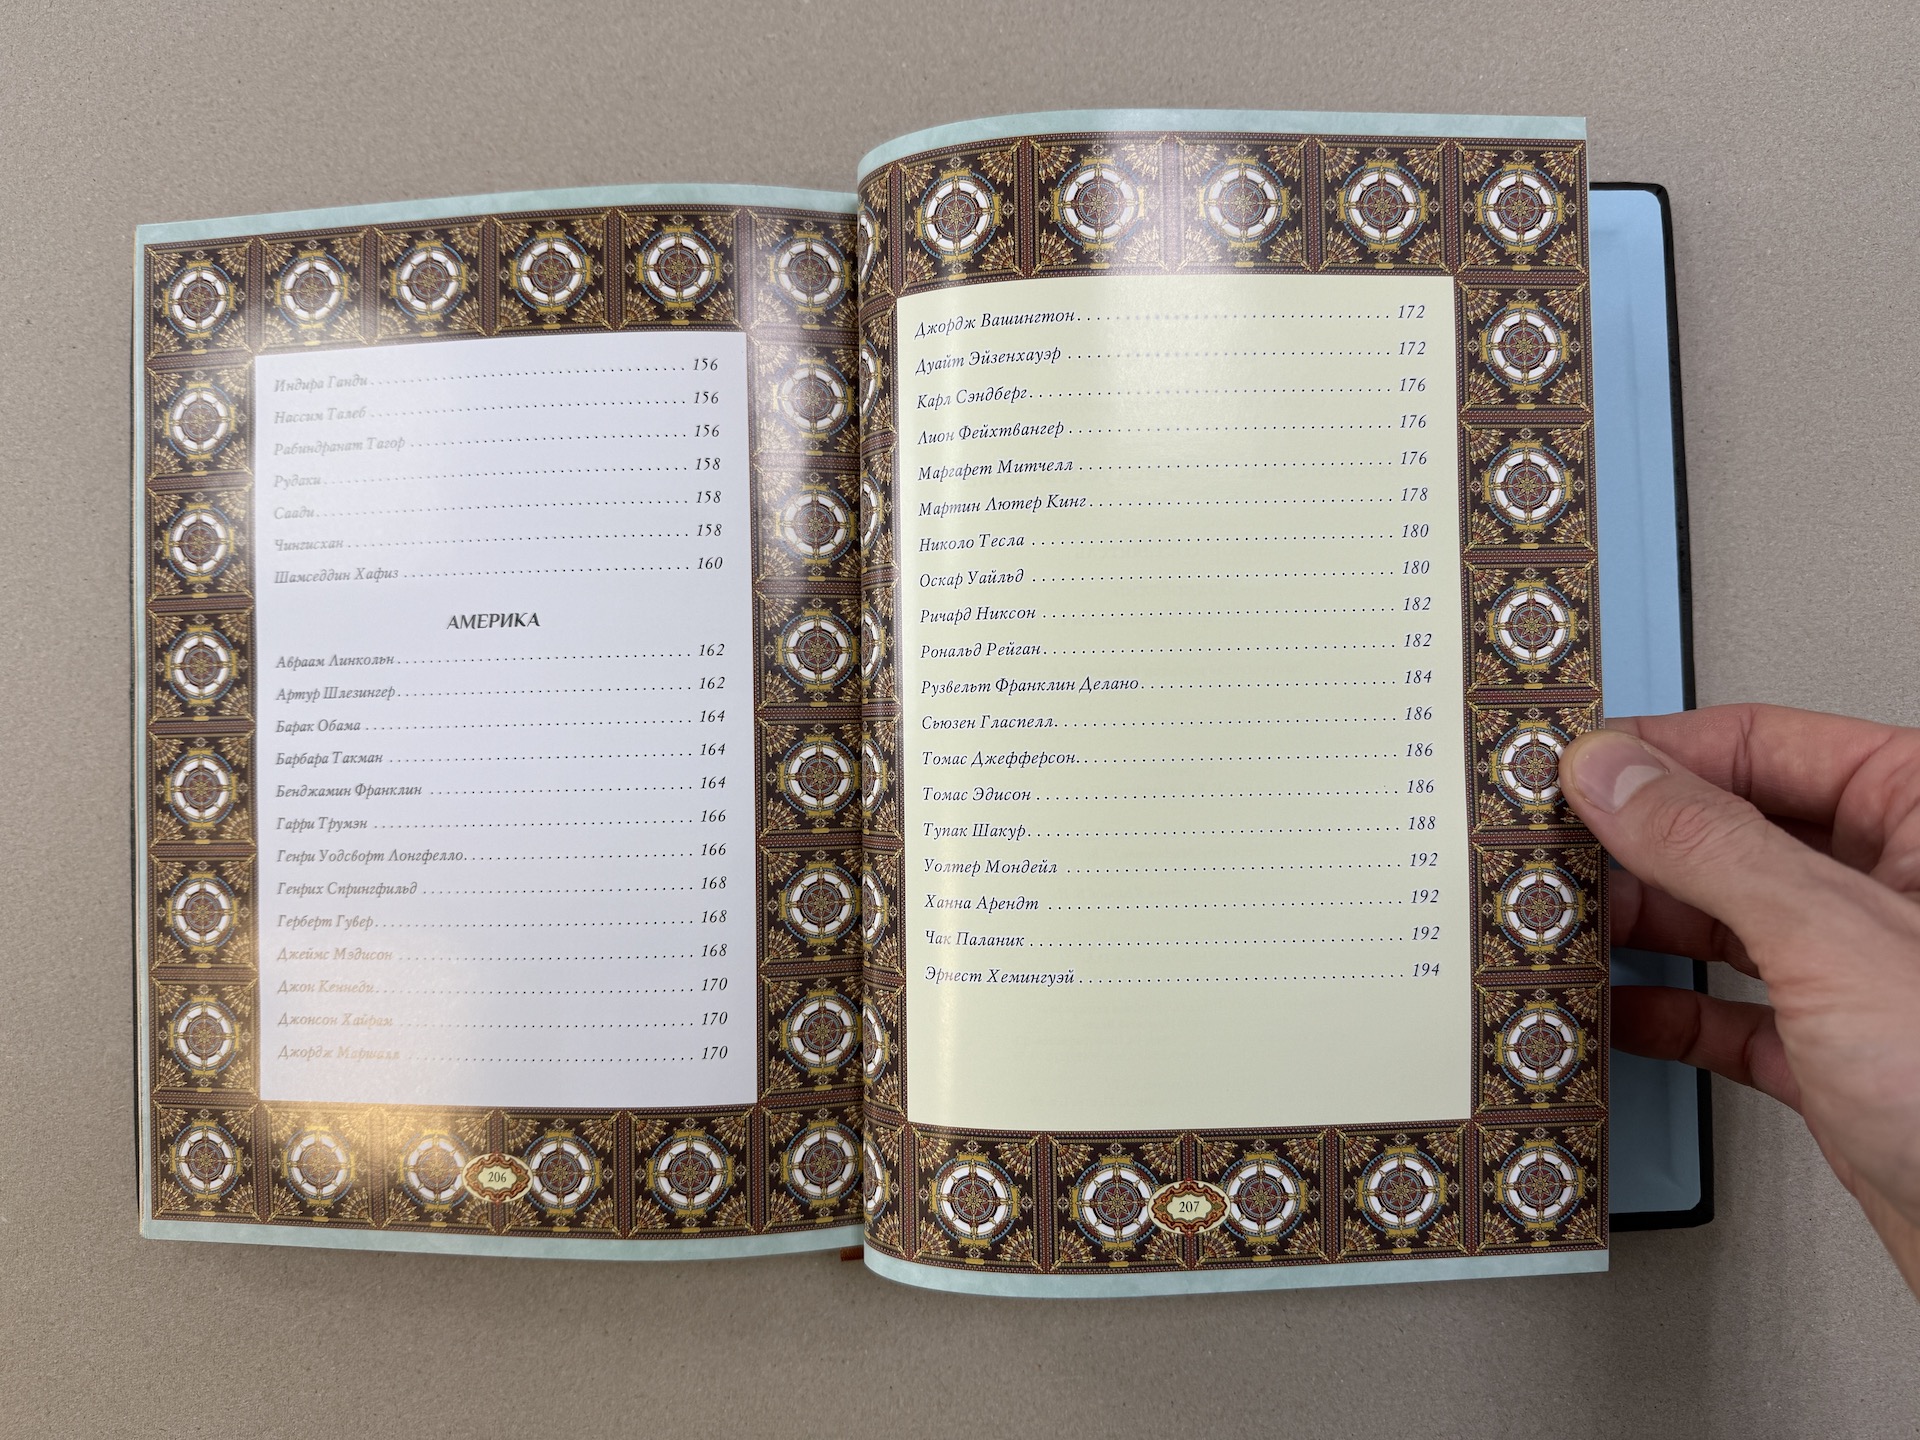 Индира Ганди . . . . . . . . . . . . . . . . . . . . 156
Нассим Талеб . . . . . . . . . . . . . . . . . . . . 156
Рабиндранат Тагор . . . . . . . . . . . . . . . . . . . . 156
Рудаки . . . . . . . . . . . . . . . . . . . . 158
Саади . . . . . . . . . . . . . . . . . . . . 158
Чингисхан . . . . . . . . . . . . . . . . . . . . 158
Шамседдин Хафиз . . . . . . . . . . . . . . . . . . . . 160
АМЕРИКА
Авраам Линкольн . . . . . . . . . . . . . . . . . . . . 162
Артур Шлезингер . . . . . . . . . . . . . . . . . . . . 162
Барак Обама . . . . . . . . . . . . . . . . . . . . 164
Барбара Такман . . . . . . . . . . . . . . . . . . . . 164
Бенджамин Франклин . . . . . . . . . . . . . . . . . . . . 164
Гарри Трумэн . . . . . . . . . . . . . . . . . . . . 166
Генри Уодсворт Лонгфелло . . . . . . . . . . . . . . . . . . . . 166
Генрих Спрингфильд . . . . . . . . . . . . . . . . . . . . 168
Герберт Гувер . . . . . . . . . . . . . . . . . . . . 168
Джеймс Мэдисон . . . . . . . . . . . . . . . . . . . . 168
Джон Кеннеди . . . . . . . . . . . . . . . . . . . . 170
Джонсон Хайрам . . . . . . . . . . . . . . . . . . . . 170
Джордж Маршалл . . . . . . . . . . . . . . . . . . . . 170
206
Джордж Вашингтон . . . . . . . . . . . . . . . . . . . . 172
Дуайт Эйзенхауэр . . . . . . . . . . . . . . . . . . . . 172
Карл Сэндберг . . . . . . . . . . . . . . . . . . . . 176
Лион Фейхтвангер . . . . . . . . . . . . . . . . . . . . 176
Маргарет Митчелл . . . . . . . . . . . . . . . . . . . . 176
Мартин Лютер Кинг . . . . . . . . . . . . . . . . . . . . 178
Николо Тесла . . . . . . . . . . . . . . . . . . . . 180
Оскар Уайльд . . . . . . . . . . . . . . . . . . . . 180
Ричард Никсон . . . . . . . . . . . . . . . . . . . . 182
Рональд Рейган . . . . . . . . . . . . . . . . . . . . 182
Рузвельт Франклин Делано . . . . . . . . . . . . . . . . . . . . 184
Сьюзен Гласпелл . . . . . . . . . . . . . . . . . . . . 186
Томас Джефферсон . . . . . . . . . . . . . . . . . . . . 186
Томас Эдисон . . . . . . . . . . . . . . . . . . . . 186
Тупак Шакур . . . . . . . . . . . . . . . . . . . . 188
Уолтер Мондейл . . . . . . . . . . . . . . . . . . . . 192
Ханна Арендт . . . . . . . . . . . . . . . . . . . . 192
Чак Паланик . . . . . . . . . . . . . . . . . . . . 192
Эрнест Хемингуэй . . . . . . . . . . . . . . . . . . . . 194
207